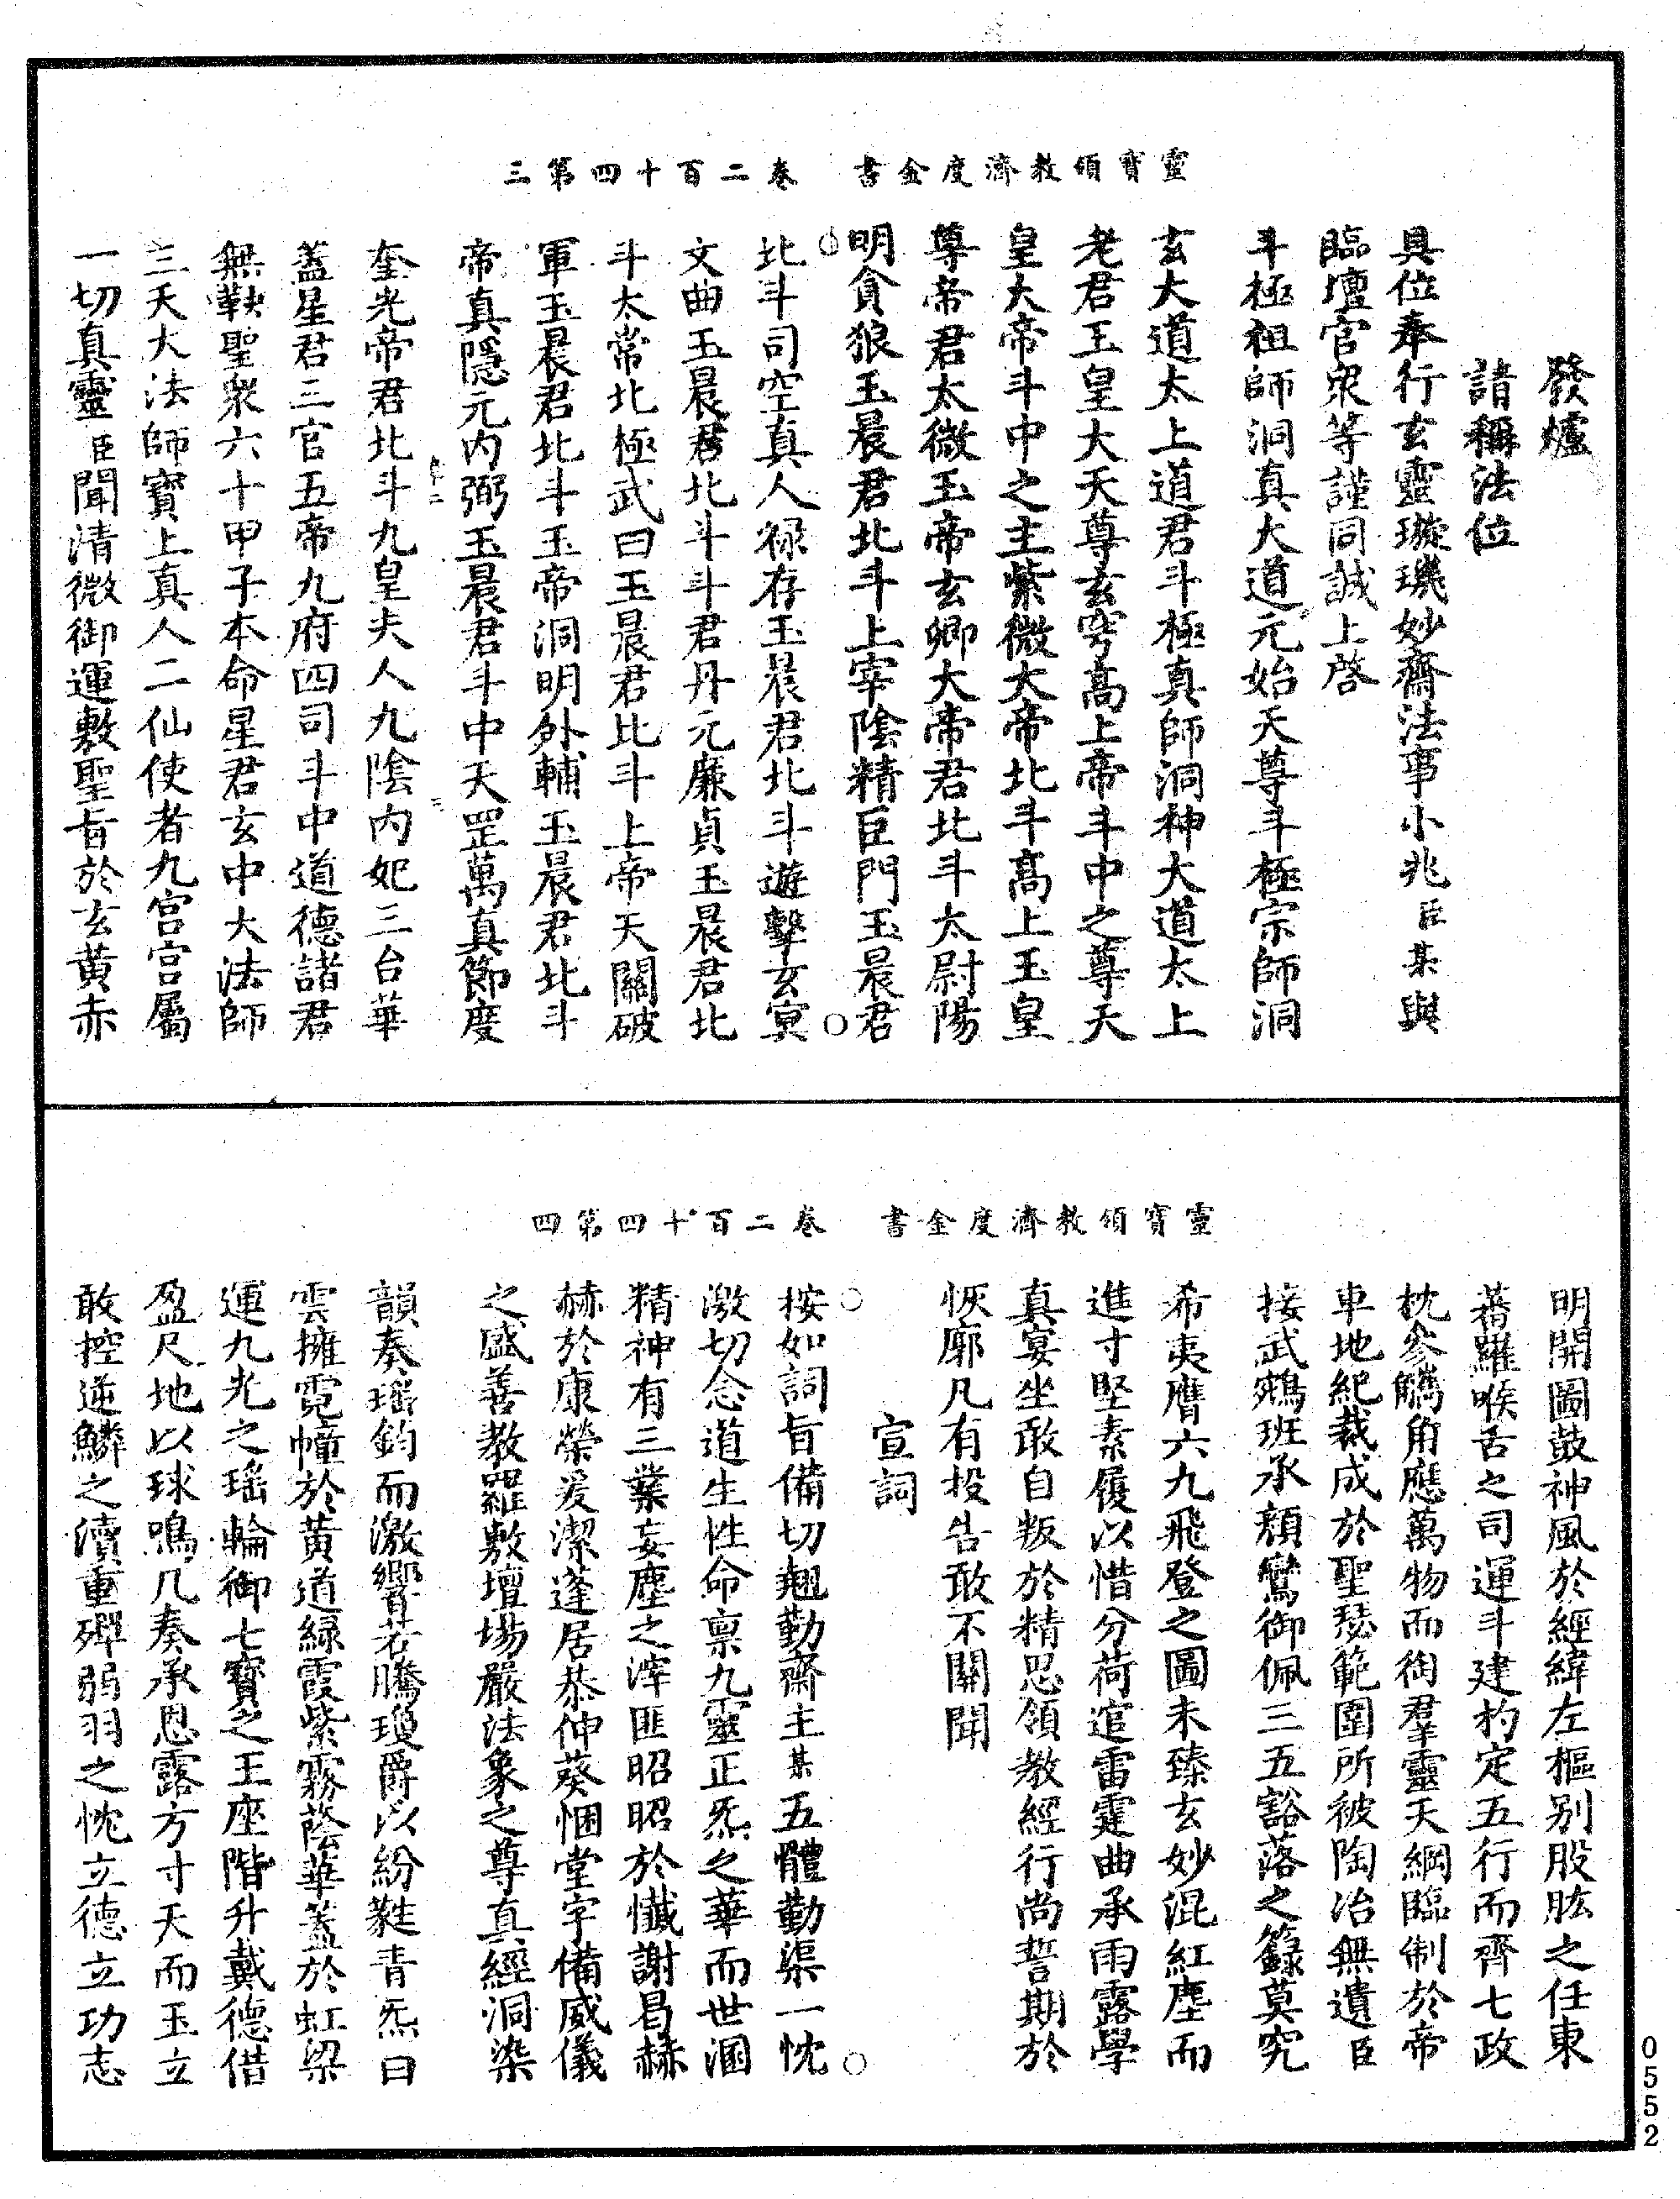 靈寶領教濟度金書　卷二百四十第三
發爐
請稱法位
具位奉行玄靈璇璣妙齋法事小兆臣某與
臨壇官衆等謹同誠上啓
斗極祖師洞真大道元始天尊斗極宗師洞
玄大道太上道君斗極真師洞神大道太上
老君玉皇大天尊玄穹高上帝斗中之尊天
皇大帝斗中之主紫微大帝北斗高上玉皇
尊帝君太微玉帝玄卿大帝君北斗太尉陽
明貪狼玉晨君北斗上宰陰精巨門玉晨君
北斗司空真人禄存玉晨君北斗遊擊玄冥
文曲玉晨君北斗斗君丹元廉貞玉晨君北
斗太常北極武曰玉晨君比斗上帝天關破
軍玉晨君北斗玉帝洞明外輔玉晨君北斗
帝真隱元内弼玉晨君斗中天罡萬真節度
奎光帝君北斗九皇夫人九陰内妃三台華
蓋星君三官五帝九府四司斗中道德諸君
無鞅聖衆六十甲子本命星君玄中大法師
三天大法師寶上真人二仙使者九宫宫屬
一切真靈臣聞清微御運敷聖旨於玄黄赤
靈寶領教濟度金書　卷二百四十第四
明開圖鼓神風於經緯左樞别股肱之任東
蕃羅喉舌之司運斗建杓定五行而齊七政
枕參觿角應萬物而御羣靈天綱臨制於帝
車地紀裁成於聖瑟範圍所被陶冶無遺臣
接武鵷班承顔鸞御佩三五豁落之籙莫究
希夷膺六九飛登之圖未臻玄妙混紅塵而
進寸堅素履以惜分荷逭雷霆曲承雨露學
真宴坐敢自叛於精思領教經行尚誓期於
恢廓凡有投告敢不關聞
宣詞
按如詞旨備切翹勤齋主某五體勤渠一忱
激切念道生性命禀九靈正炁之華而世溷
精神有三業妄塵之滓匪昭昭於懺謝曷赫
赫於康榮爰潔蓬居恭伸葵悃堂字備威儀
之盛善教羅敷壇場嚴法象之尊真經洞染
韻奏瑶鈞而激響若騰瓊爵以紛蕤青炁曰
雲擁霓幢於黄道緑霞紫霧蔭華蓋於虹梁
運九光之瑶輪御七寶之王座階升戴德借
盈尺地以球鳴几奏承恩露方寸天而玉立
敢控逆鱗之瀆重殫弱羽之忱立德立功志
0552